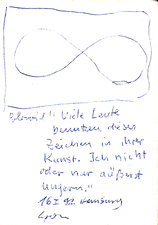 "Viele Leute
benutzen dieses
Zeichen in ihrer
Kunst. Ich nicht
oder nur äußerst
ungern."
16 I 92 Hamburg